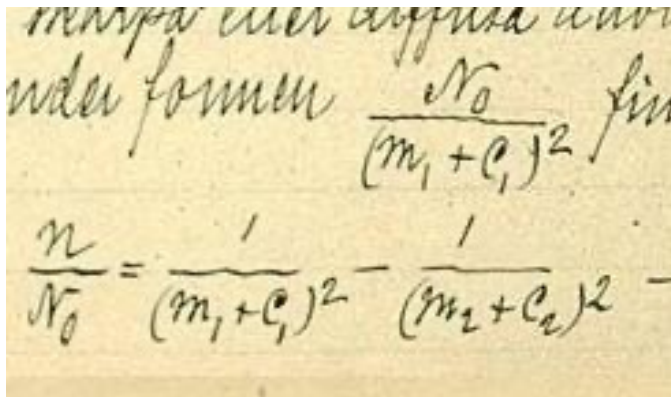 skarpa eller diffusa
under formen N₀/(m₁ + C₁)²
n/N₀ = 1/(m₁ + C₁)² - 1/(m₂ + C₂)² -